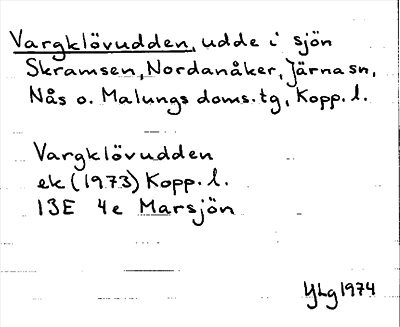 Vargklövudden, udde i sjön
Skramsen, Nordanåker, Järna sn,
Nås o. Malungs doms.tg, Kopp. l.
Vargklövudden
ek (1973) Kopp. l.
13E 4e Marsjön
YLg 1974